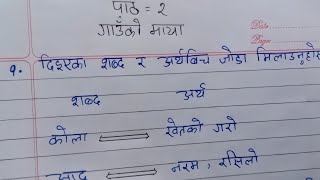 पाठ = २
गाउँको माया
Date
Page
१. दिइएका शब्द र अर्थबिच जोडा मिलाउनुहोस
शब्द अर्थ
कोला ⟺ खेतको गरो
नरम, रसिलो